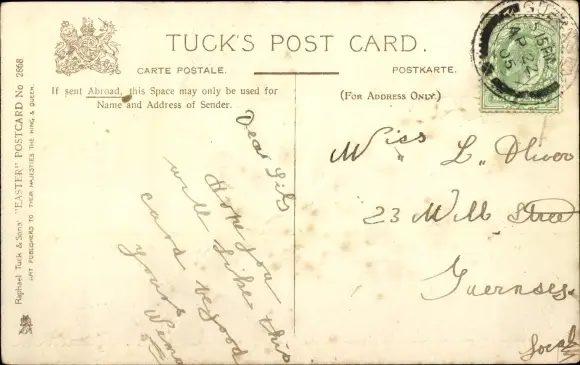 TUCK'S POST CARD.
CARTE POSTALE.
POSTKARTE.
If sent Abroad, this Space may only be used for
Name and Address of Sender.
(FOR ADDRESS ONLY.)
Raphael Tuck & Sons' "EASTER" POSTCARD No 2868
ART PUBLISHERS TO THEIR MAJESTIES THE KING & QUEEN.
Dear Lils
Hope you
will like this
card
yours
Miss L. Oliver
23 Mill Street
Guernsey.
Local
AP 22
05